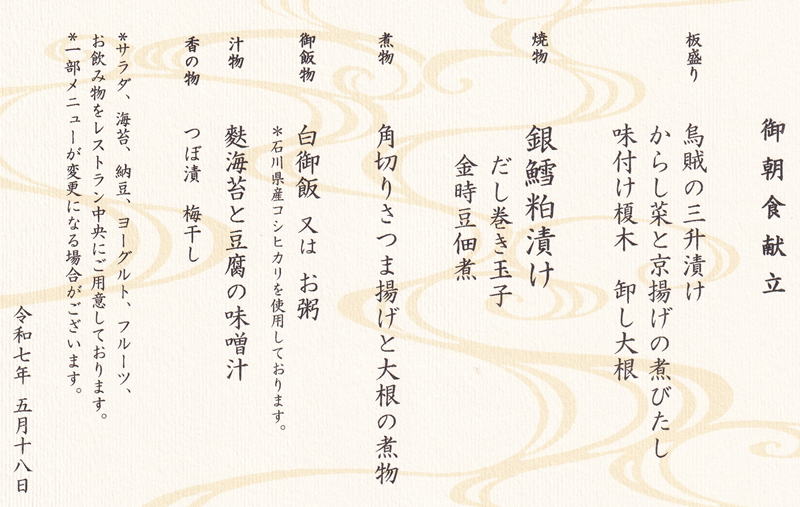 御朝食献立
板盛り
烏賊の三升漬け
からし菜と京揚げの煮びたし
味付け榎木　卸し大根
焼物
銀鱈粕漬け
だし巻き玉子
金時豆佃煮
煮物
角切りさつま揚げと大根の煮物
御飯物
白御飯 又は お粥
*石川県産コシヒカリを使用しております。
汁物
麩海苔と豆腐の味噌汁
香の物
つぼ漬　梅干し
*サラダ、海苔、納豆、ヨーグルト、フルーツ、
お飲み物をレストラン中央にご用意しております。
*一部メニューが変更になる場合がございます。
令和七年 五月十八日